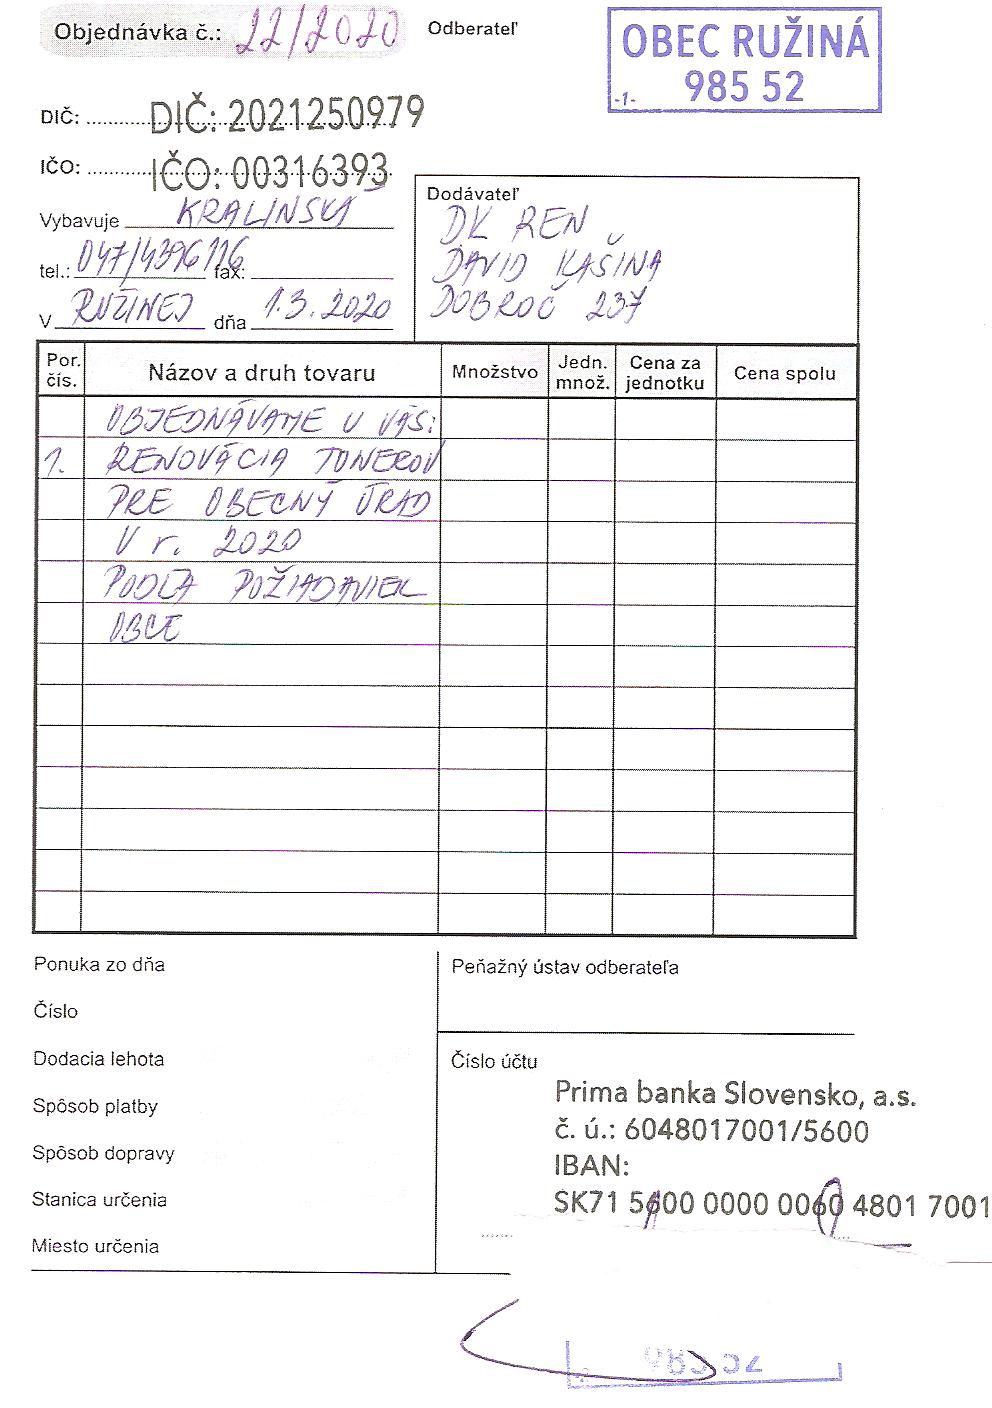 Objednávka č.: 22/2020
Odberateľ
OBEC RUŽINÁ
985 52
-1-
DIČ: DIČ: 2021250979
IČO: IČO: 00316393
Vybavuje KRALINSKÝ
tel.: 047/4396116 fax:
V RUŽINEJ dňa 1.3.2020
Dodávateľ
DK REN
DAVID KAŠINA
DOBROČ 237
Por. čís. Názov a druh tovaru Množstvo Jedn. množ. Cena za jednotku Cena spolu
OBJEDNÁVAME U VÁS:
1. RENOVÁCIA TONEROV
PRE OBECNÝ ÚRAD
V r. 2020
PODĽA POŽIADAVIEK
OBCE
Ponuka zo dňa
Číslo
Dodacia lehota
Spôsob platby
Spôsob dopravy
Stanica určenia
Miesto určenia
Peňažný ústav odberateľa
Číslo účtu
Prima banka Slovensko, a.s.
č. ú.: 6048017001/5600
IBAN:
SK71 5600 0000 0060 4801 7001
985 52